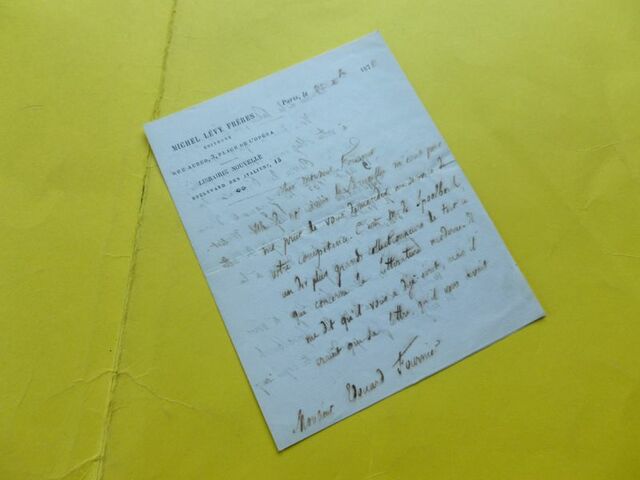 MICHEL LÉVY FRÈRES
ÉDITEURS
RUE AUBER, 3, PLACE DE L'OPÉRA
LIBRAIRIE NOUVELLE
BOULEVARD DES ITALIENS, 15
Paris, le 187
Cher Monsieur Fournier
un de nos amis de Bruxelles
me prie de vous demander
votre compétence. C'est M. de Spoelberch
un des plus grands collectionneurs de tout
qui concerne la littérature moderne. Il
me dit qu'il vous a déjà écrit mais il
craint que la lettre qu'il vous avait
Monsieur Edouard Fournier